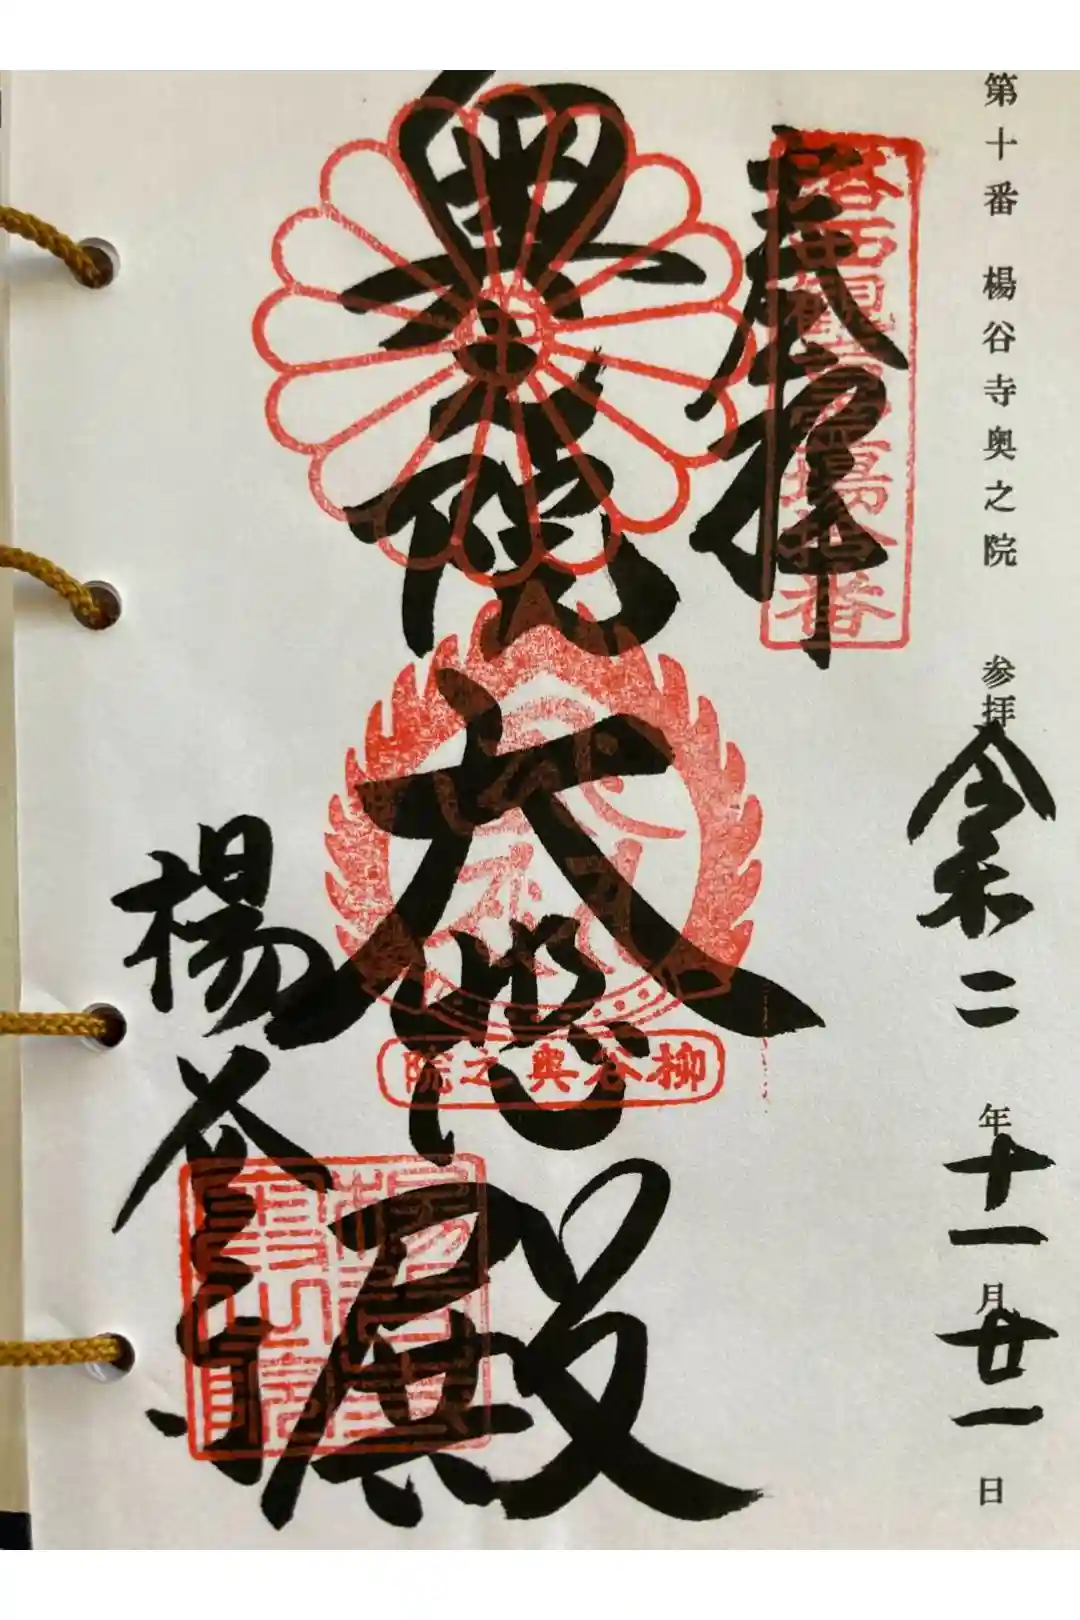 第十番 楊谷寺奥之院 参拝 令和二年十一月廿一日
奉拝
洛西観音霊場拾番
奥院 大悲殿
柳谷奥之院
楊谷寺